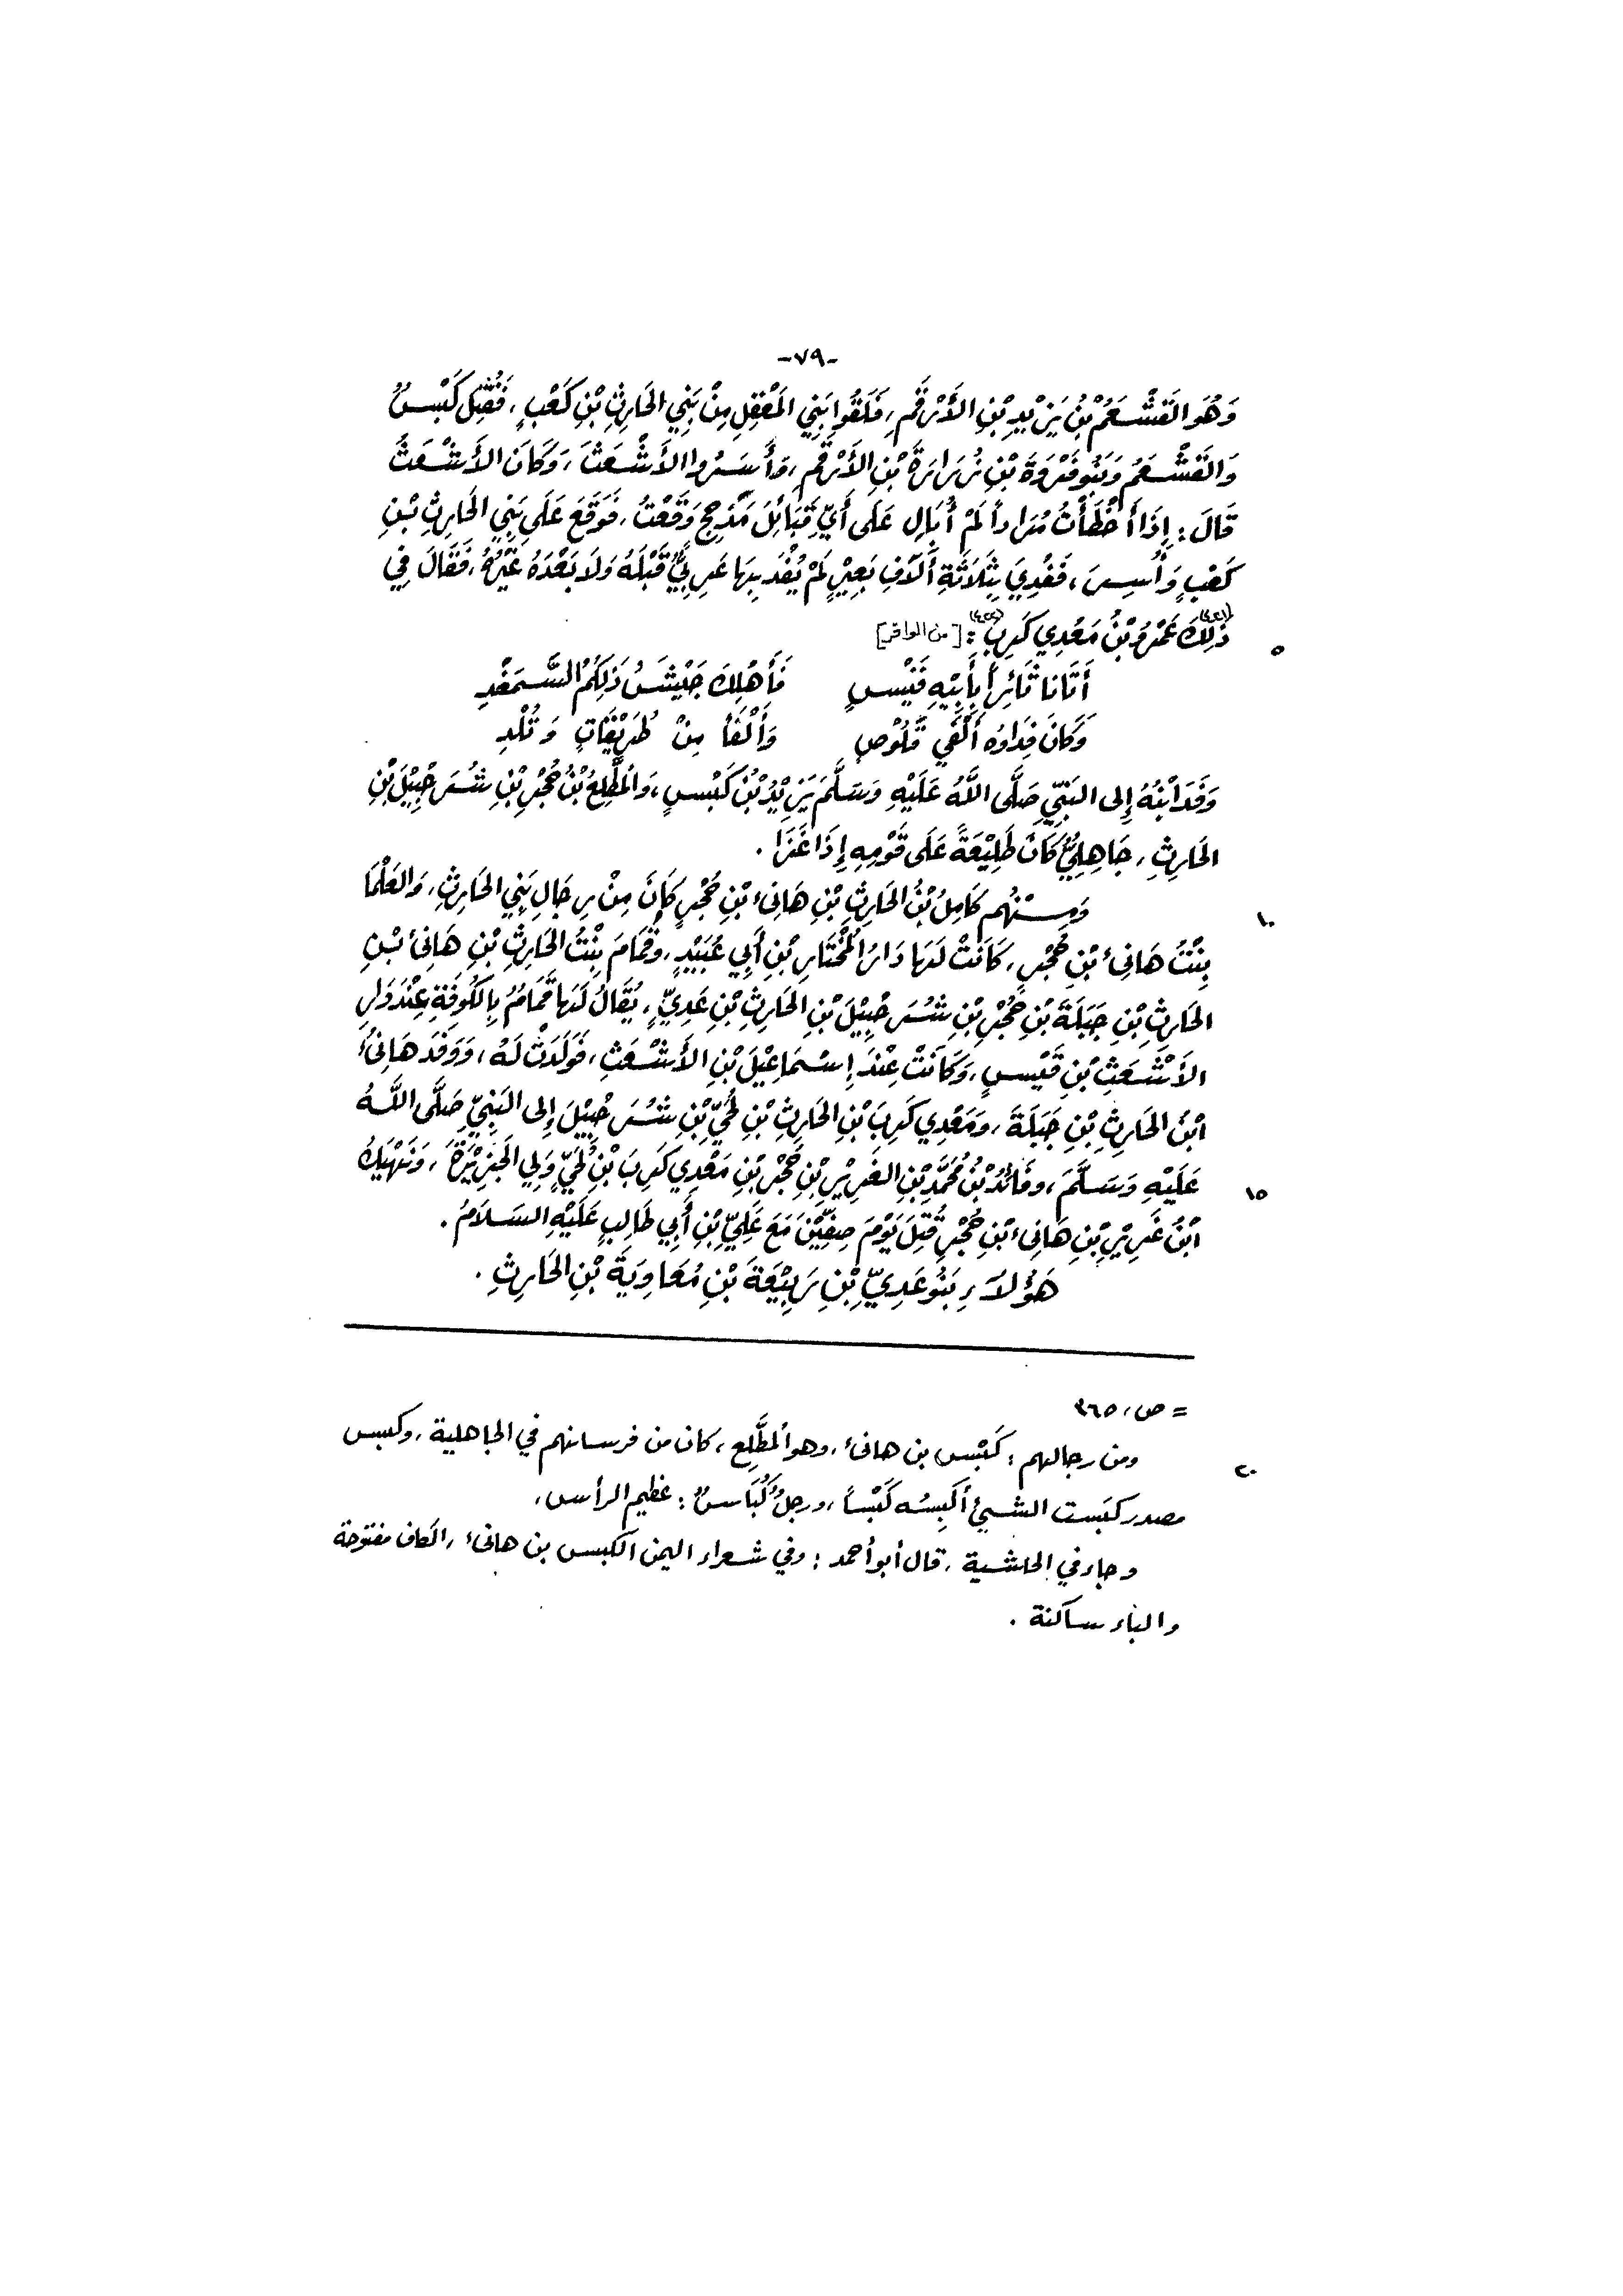 -٧٩-
وَهُوَ القَشْعَمُ بْنُ يَزِيْدِ بْنِ الأَرْقَمِ، فَلَقُوا بَنِي المَعْقِلِ مِنْ بَنِي الحَارِثِ بْنِ كَعْبٍ، فَقُتِلَ كَبْسٌ
وَالقَشْعَمُ وَبَنُو فَرْوَةَ بْنِ زُرَارَةَ بْنِ الأَرْقَمِ، وَأَسَرُوا الأَشْعَثَ، وَكَانَ الأَشْعَثُ
قَالَ: إِذَا أَخْطَأْتُ مُرَاداً لَمْ أُبَالِ عَلَى أَيِّ قَبَائِلَ مَذْحِجٍ وَقَعْتُ، فَوَقَعَ عَلَى بَنِي الحَارِثِ بْنِ
كَعْبٍ وَأُسِرَ، فَفُدِيَ بِثَلَاثَةِ أَلَافِ بَعِيْرٍ لَمْ يُفْدَ بِهَا عَرَبِيٌّ قَبْلَهُ وَلَا بَعْدَهُ غَيْرُهُ، فَقَالَ فِي
ذَلِكَ عَمْرُو بْنُ مَعْدِي كَرِبَ: [من الوافر] ٥
أَتَانَا ثَائِراً بِأَبِيْهِ قَيْسٍ فَأَهْلَكَ جَيْشَ ذَلِكُمُ السَّمَغْدِ
وَكَانَ فِدَاؤُهُ أَلْفَي قَلُوْصٍ وَأَلْفاً مِنْ طُرَيْفَاتٍ وَتُلْدِ
وَفَدَ ابْنُهُ إِلى النَّبِيِّ صَلَّى اللَّهُ عَلَيْهِ وَسَلَّمَ يَزِيْدُ بْنُ كَبْسٍ، وَالمُطَّلِعُ بْنُ حُجْرِ بْنِ شُرَحْبِيْلَ بْنِ
الحَارِثِ، جَاهِلِيٌّ كَانَ طَلِيْعَةً عَلَى قَوْمِهِ إِذَا غَزَا.
وَمِنْهُم كَامِلُ بْنُ الحَارِثِ بْنِ هَانِئ بْنِ حُجْرٍ كَانَ مِنْ رِجَالِ بَنِي الحَارِثِ، وَالعَلْمَا ١٠
بِنْتُ هَانِئ بْنِ حُجْرٍ، كَانَتْ لَهَا دَارُ المُخْتَارِ بْنِ أَبِي عُبَيْدٍ، وقَمَامَ بِنْتُ الحَارِثِ بْنِ هَانِئ بْنِ
الحَارِثِ بْنِ جَبَلَةَ بْنِ حُجْرِ بْنِ شُرَحْبِيْلَ بْنِ الحَارِثِ بْنِ عَدِيٍّ، يُقَالُ لَهَا قَمَامُ بِالكُوفَةِ عِنْدَ دَارِ
الأَشْعَثِ بْنِ قَيْسٍ، وَكَانَتْ عِنْدَ إِسْمَاعِيْلَ بْنِ الأَشْعَثِ، فَوَلَدَتْ لَهُ، وَوَفَدَ هَانِئُ
ابْنُ الحَارِثِ بْنِ جَبَلَةَ، وَمَعْدِي كَرِبَ بْنِ الحَارِثِ بْنِ لُحَيِّ بْنِ شُرَحْبِيْلَ إِلى النَّبِيِّ صَلَّى اللَّهُ
عَلَيْهِ وَسَلَّمَ، وَفَائِدُ بْنُ مُحَمَّدِ بْنِ الغَرِيْرِ بْنِ حُجْرِ بْنِ مَعْدِي كَرِبَ بْنِ لُحَيٍّ وَلِي الجَزِيْرَةَ، وَنَهِيْكُ ١٥
ابْنُ غَرِيْرِ بْنِ هَانِئ بْنِ حُجْرٍ قُتِلَ يَوْمَ صِفِّيْنَ مَعَ عَلِيِّ بْنِ أَبِي طَالِبٍ عَلَيْهِ السَلَامُ.
هَؤُلاَءِ بَنُو عَدِيِّ بْنِ رَبِيْعَةَ بْنِ مُعَاوِيَةَ بْنِ الحَارِثِ.
= ص، ٣٦٥
ومن رجالهم: كَبْس بن هانئ، وهو المطَّلِع، كان من فرسانهم في الجاهلية، وكبس ٢٠
مصدر كبَست الشيئ أكبِسُه كَبْساً، ورجلٌ كُبَاسٌ: عظيم الرأس،
وجاء في الحاشية، قال أبو أحمد: وفي شعراء اليمن الكبس بن هانئ، الكاف مفتوحة
والباء ساكنة.